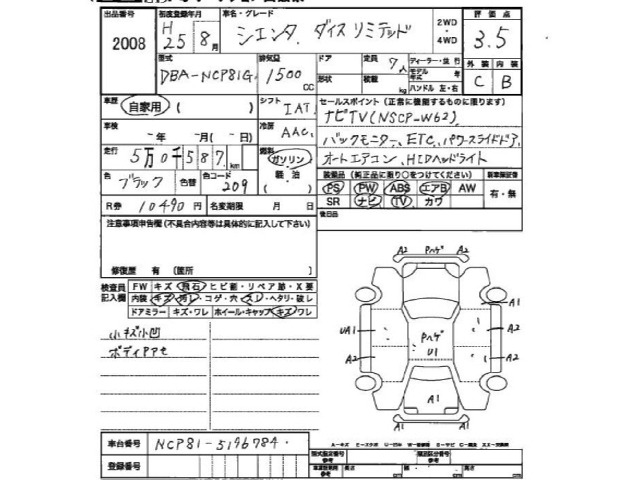 出品番号 初度登録年月 車名・グレード 2WD・4WD 評価点
2008 H25年8月 シエンタ ダイス リミテッド 3.5
型式 排気量 ドア 定員 7人 ディーラー・並行 外装 内装
DBA-NCP81G 1500cc 形状 積載 kg モデル年式 年 ハンドル 左・右 C B
車歴 自家用 ( ) シフト IAT セールスポイント(正常に機能するものに限ります)
車検 -年 -月(-日) 冷房 AAC ナビTV(NSCP-W62)
バックモニター、ETC、パワースライドドア、
走行 5万0千587km 燃料 ガソリン 軽油 オートエアコン、HIDヘッドライト
色 ブラック 色替 色コード 209 装備品(純正品に限り○をつけてください) 新車保証書
PS PW ABS エアB AW 有・無
R券 10490円 名変期限 月 日 SR ナビ TV カワ
注意事項申告欄(不具合内容等は具体的に記入して下さい) 後日品
修復歴 有 (箇所
検査員記入欄 FW キズ・飛石・ヒビ割・リペア跡・X要
内装 キズ・汚レ・コゲ・穴・スレ・ヘタリ・破レ
ドアミラー キズ・ワレ ホイール・キャップ キズ・ワレ
小キズ小凹
ボディPPモ
A2 Pハゲ A2
A1
UA1 A1
Pハゲ
A2 U1 A2
A1
A1
車台番号 NCP81-5196784
登録番号